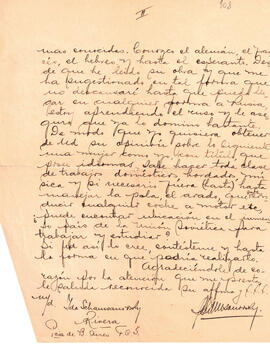 II
108
mas conocidas. Conozco el alemán, el
el hebreo y hasta el esperanto. Des
de que he leído su obra y que me
ha sugestionado en tal forma que
no descansaré hasta que pueda lle
gar en cualquier forma a Rusia,
estoy aprendiendo el ruso y le ase
guro que ya lo domino bastante.
De modo que yo quisiera obtener
de Ud su opinión sobre lo siguiente
una mujer como yo con título que
idiomas sabe hacer toda clase
de trabajos domésticos, bordado, mú
sica y si necesario fuera hasta
manejar la pala, el arado,
ducir cualquier coche a motor etc,
puede encontrar ubicación en el
país de la Unión Soviética para
trabajar y estudiar?
Si Ud así lo cree, contésteme y hasta
la forma en que podría realizarlo.
Agradeciéndole de co
razón por la atención que me
le saluda reconocida su affma. y S.S.S.
Rivera
Pcia de B. Aires F.C.S.